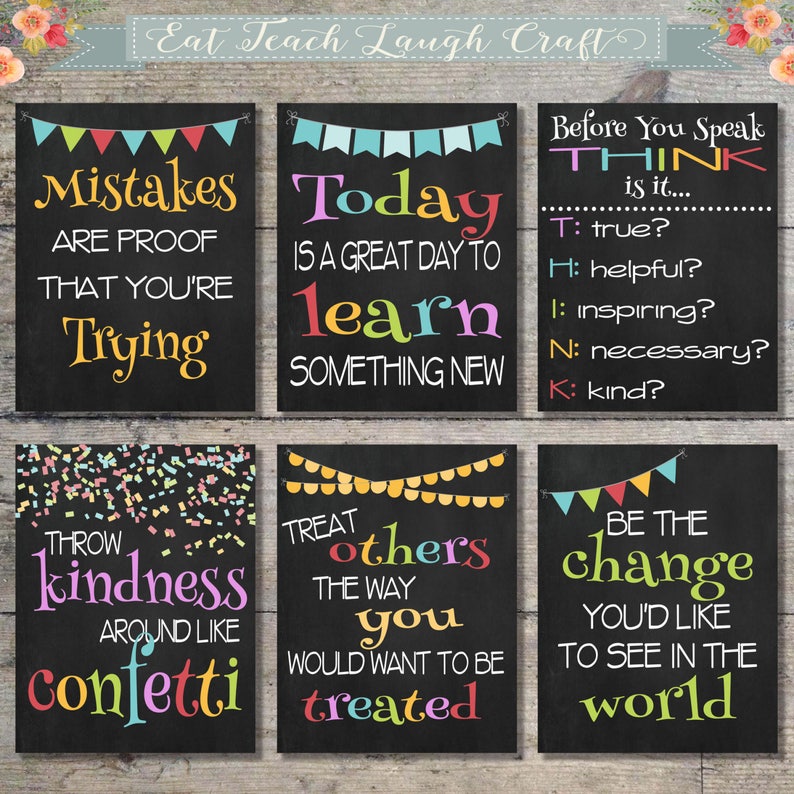 Eat Teach Laugh Craft
Mistakes
ARE PROOF
THAT YOU'RE
Trying
Today
IS A GREAT DAY TO
learn
SOMETHING NEW
Before You Speak
THINK
is it...
T: true?
H: helpful?
I: inspiring?
N: necessary?
K: kind?
THROW
kindness
AROUND LIKE
confetti
TREAT
others
THE WAY
you
WOULD WANT TO BE
treated
BE THE
change
YOU'D LIKE
TO SEE IN THE
world